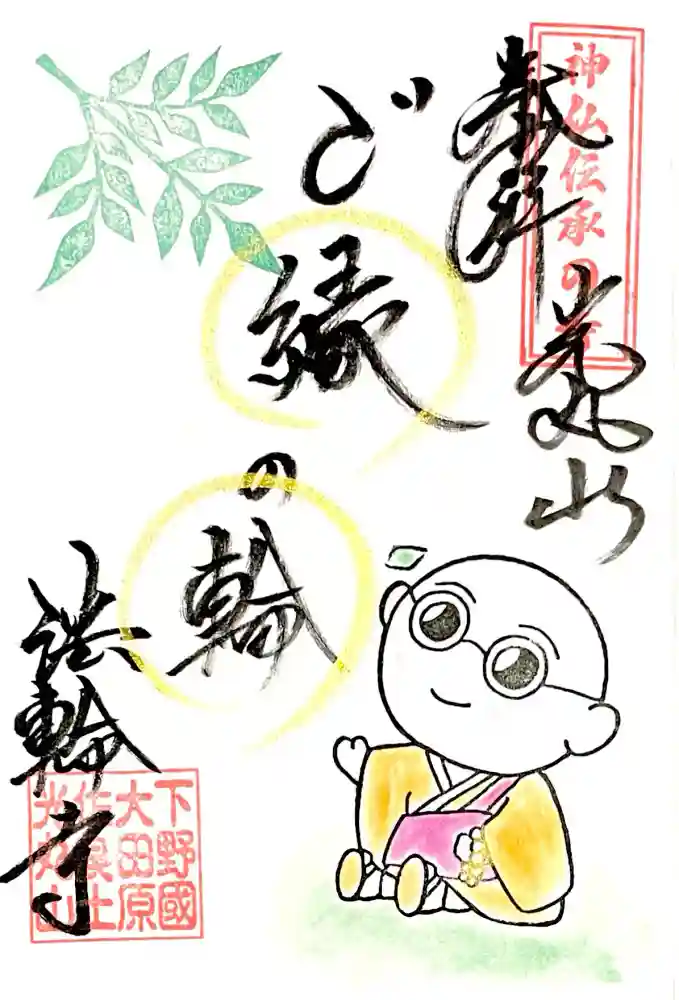 神仏伝承の寺
奉拝
光丸山
ご縁の輪
法輪寺
下野國
大田原
佐良土
光丸山